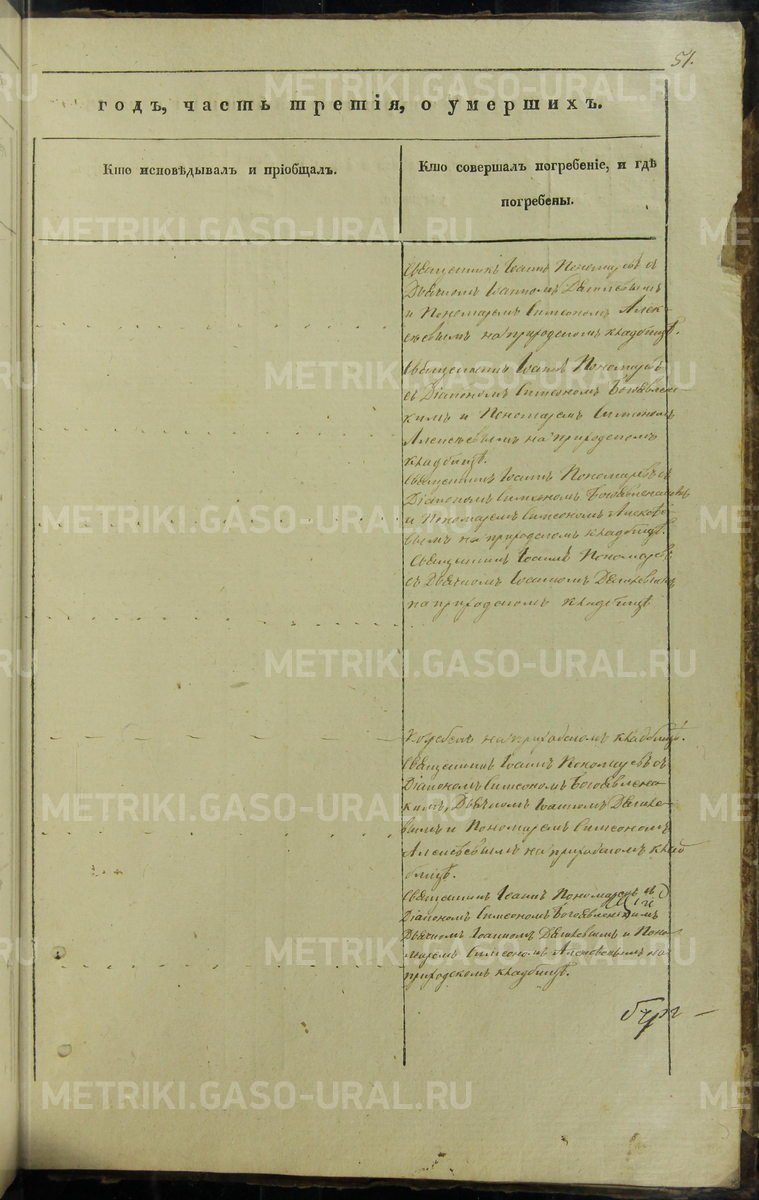 51.
годъ, часть третія, о умершихъ.
Кто исповѣдывалъ и пріобщалъ.
Кто совершалъ погребеніе, и гдѣ
погребены.
Священникъ Іоаннъ Пономаревъ съ
Дьячкомъ Іоанномъ
и Пономаремъ Симеономъ Алек-
сѣевымъ на приходскомъ кладбищѣ.
Священникъ Іоаннъ Пономаревъ
съ Діакономъ Симеономъ Богоявленс-
кимъ и Пономаремъ Симеономъ
Алексѣевымъ на приходскомъ
кладбищѣ.
Священникъ Іоаннъ Пономаревъ съ
Діакономъ Симеономъ
и Пономаремъ Симеономъ
на приходскомъ кладбищѣ.
Священникъ Іоаннъ Пономаревъ
съ Дьячкомъ Іоанномъ
на приходскомъ кладбищѣ
на приходскомъ кладбищѣ.
Священникъ Іоаннъ Пономаревъ съ
Діакономъ Симеономъ Богоявленс-
кимъ, Дьячкомъ Іоанномъ
и Пономаремъ Симеономъ
Алексѣевымъ на приходскомъ клад
бищѣ.
Священникъ Іоаннъ Пономаревъ съ
Діакономъ Симеономъ Богоявленскимъ
Дьячкомъ Іоанномъ и Поно-
маремъ Симеономъ на
приходскомъ кладбищѣ.
METRIKI.GASO-URAL.RU